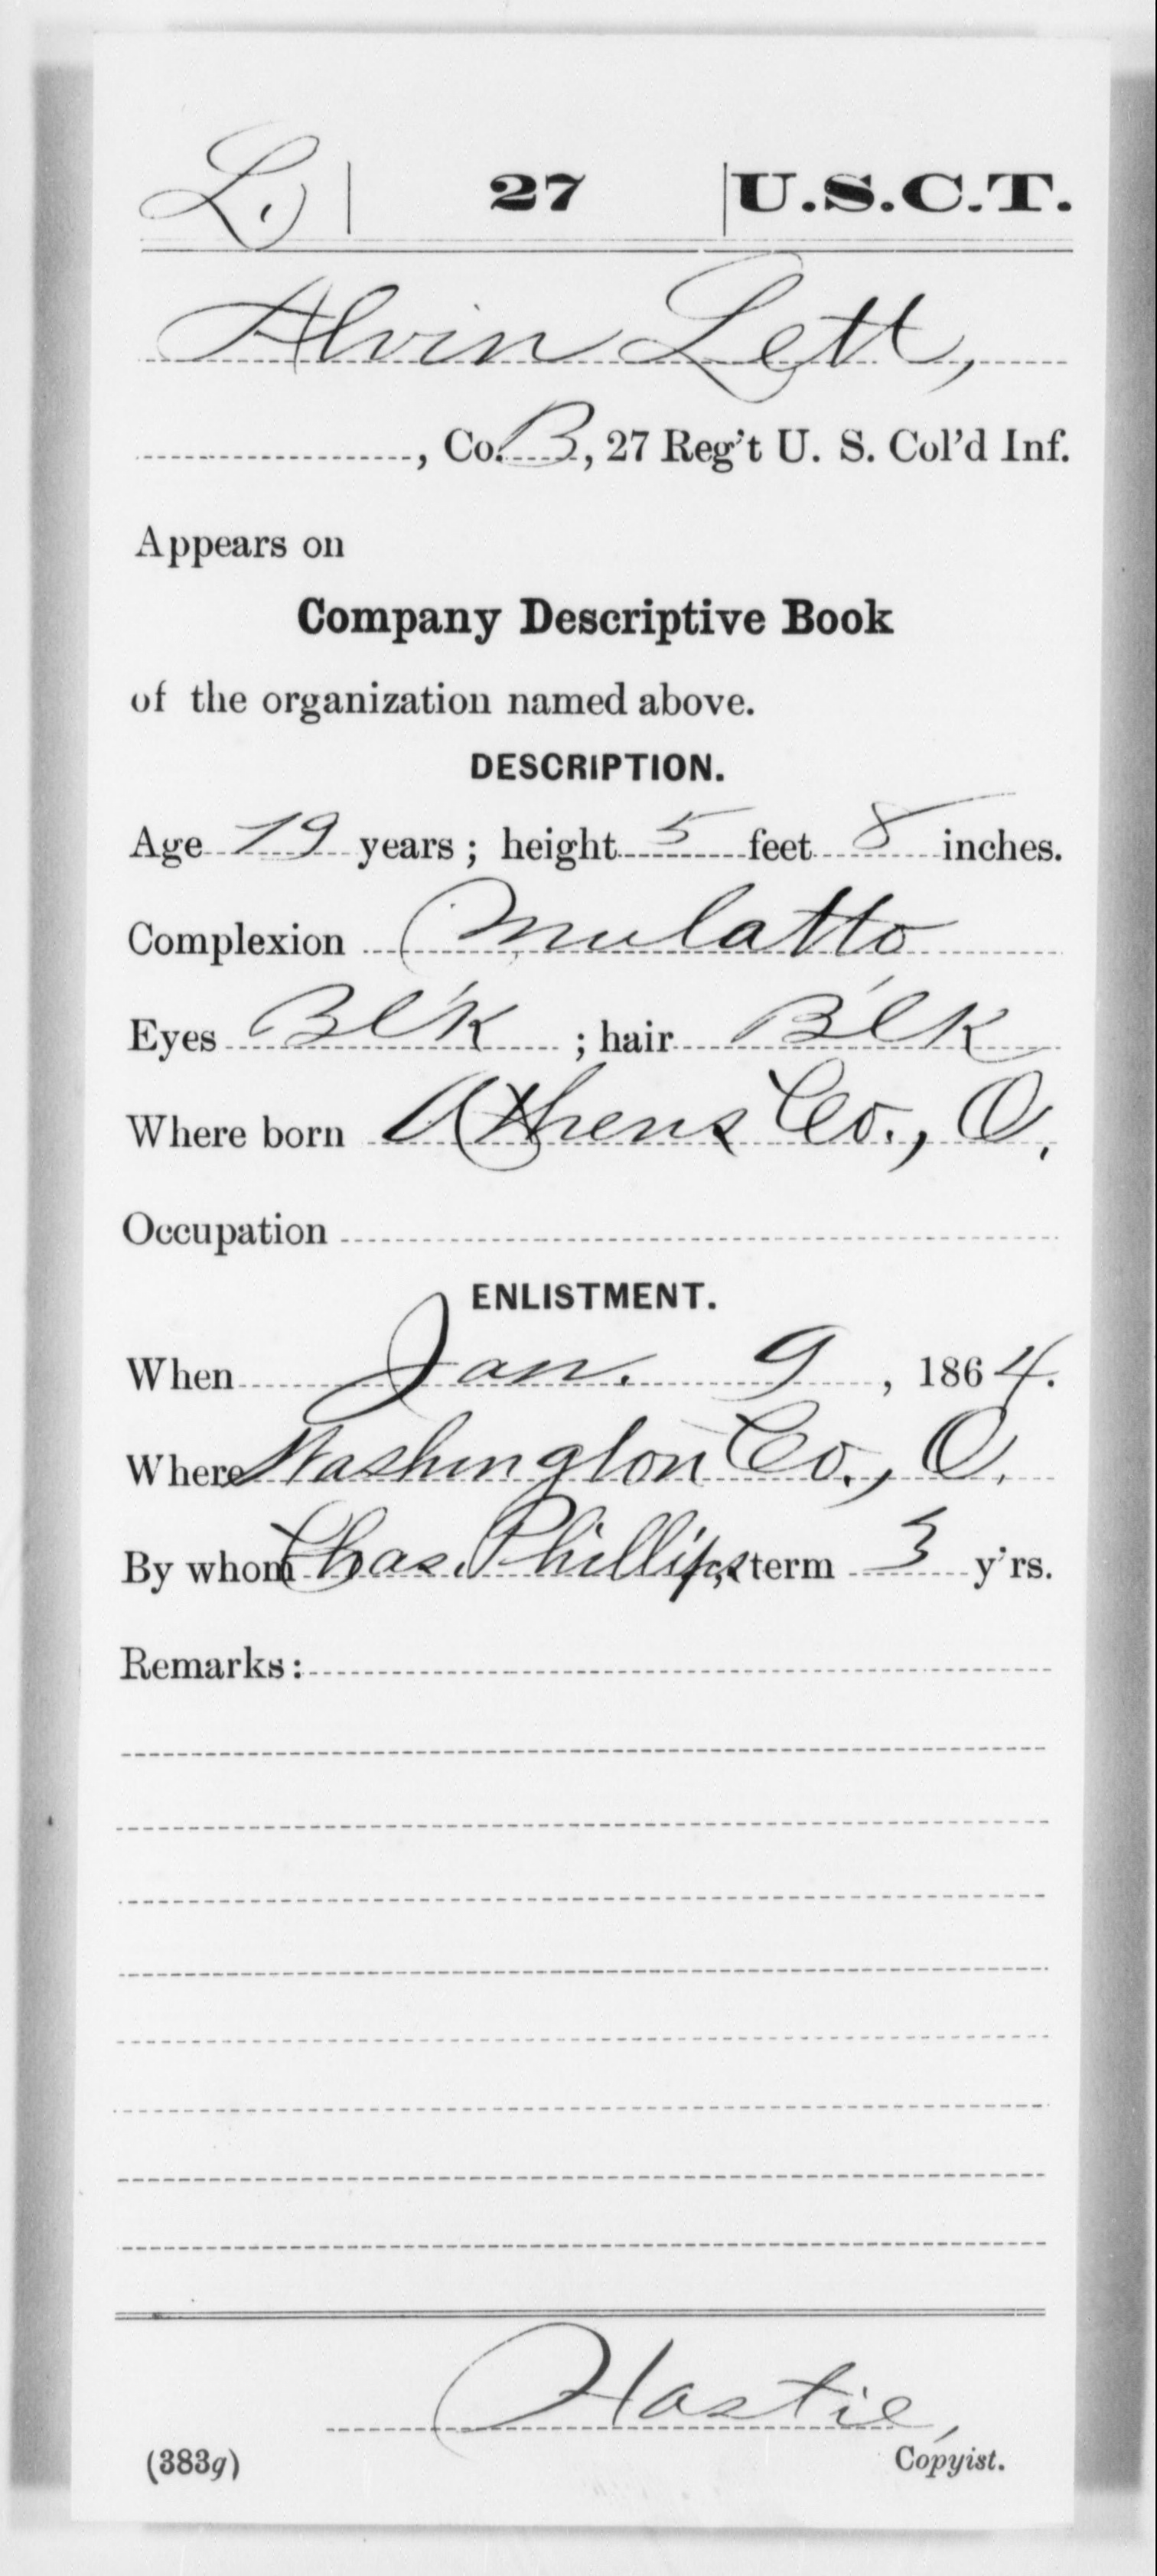 L. | 27 | U.S.C.T.
Alvin Lett,
, Co. B, 27 Reg't U. S. Col'd Inf.
Appears on
Company Descriptive Book
of the organization named above.
DESCRIPTION.
Age 19 years; height 5 feet 8 inches.
Complexion Mulatto
Eyes Bl'k ; hair Bl'k
Where born Athens Co., O.
Occupation
ENLISTMENT.
When Jan. 9, 1864.
Where Washington Co., O.
By whom Chas. Phillips; term 3 y'rs.
Remarks:
Hastie,
(383g) Copyist.